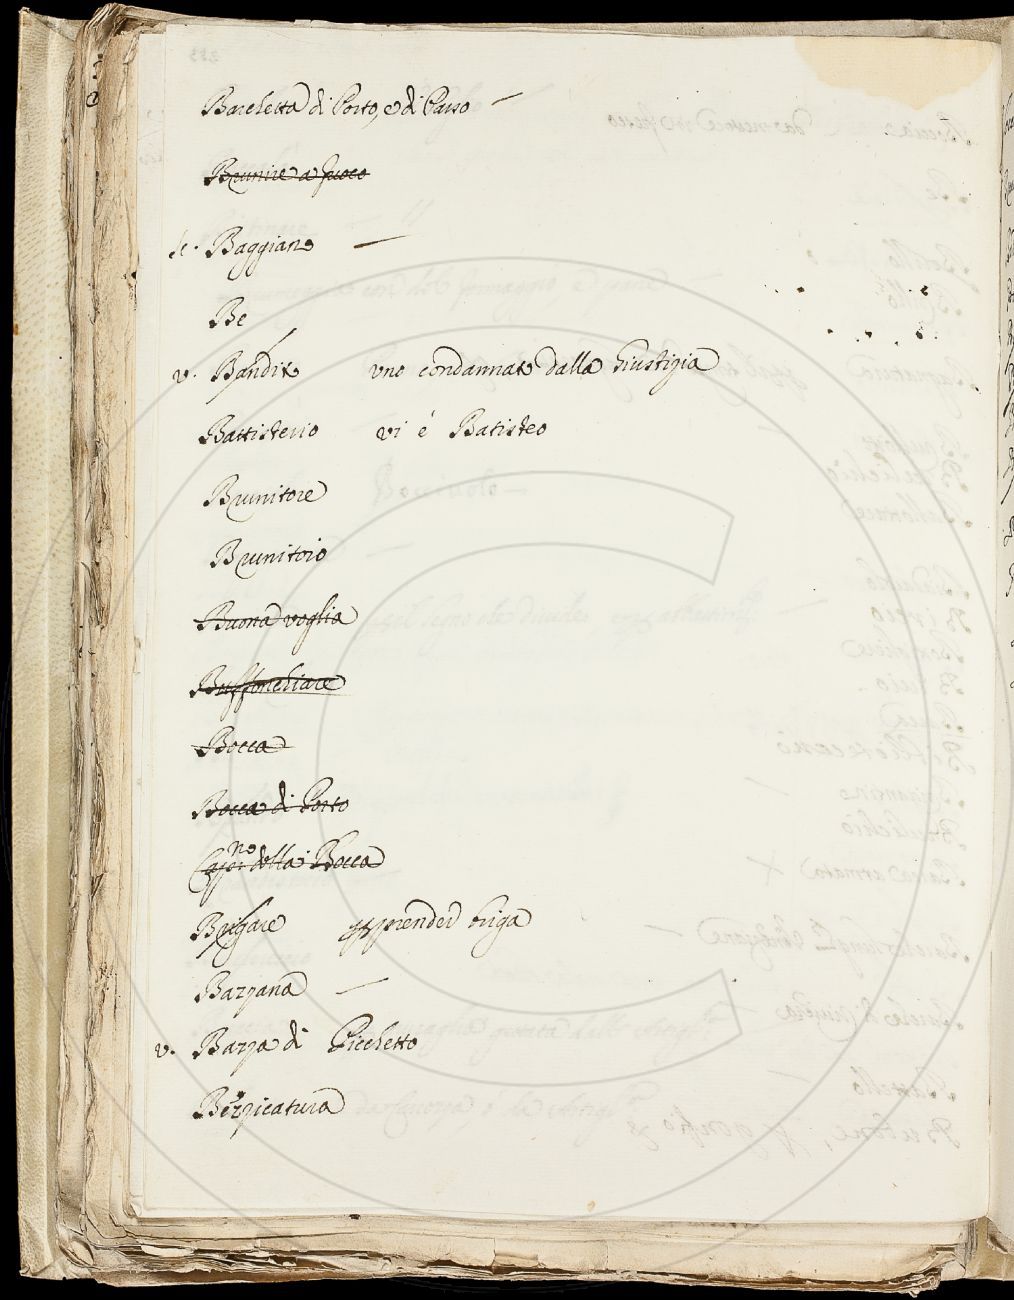 Barchetta di Porto, e di Passo —
Brunire a fuoco
Baggiano —
Be
v. Bandito uno condannato dalla Giustizia
Battisterio vi é Batisteo
Brunitore
Brunitoio
Buona voglia
Buffonchiare
Bocca
Bocca di Porto
della Bocca
Brigare prender briga
Bazzana —
v. Bazza di Picchetto
Berzicatura